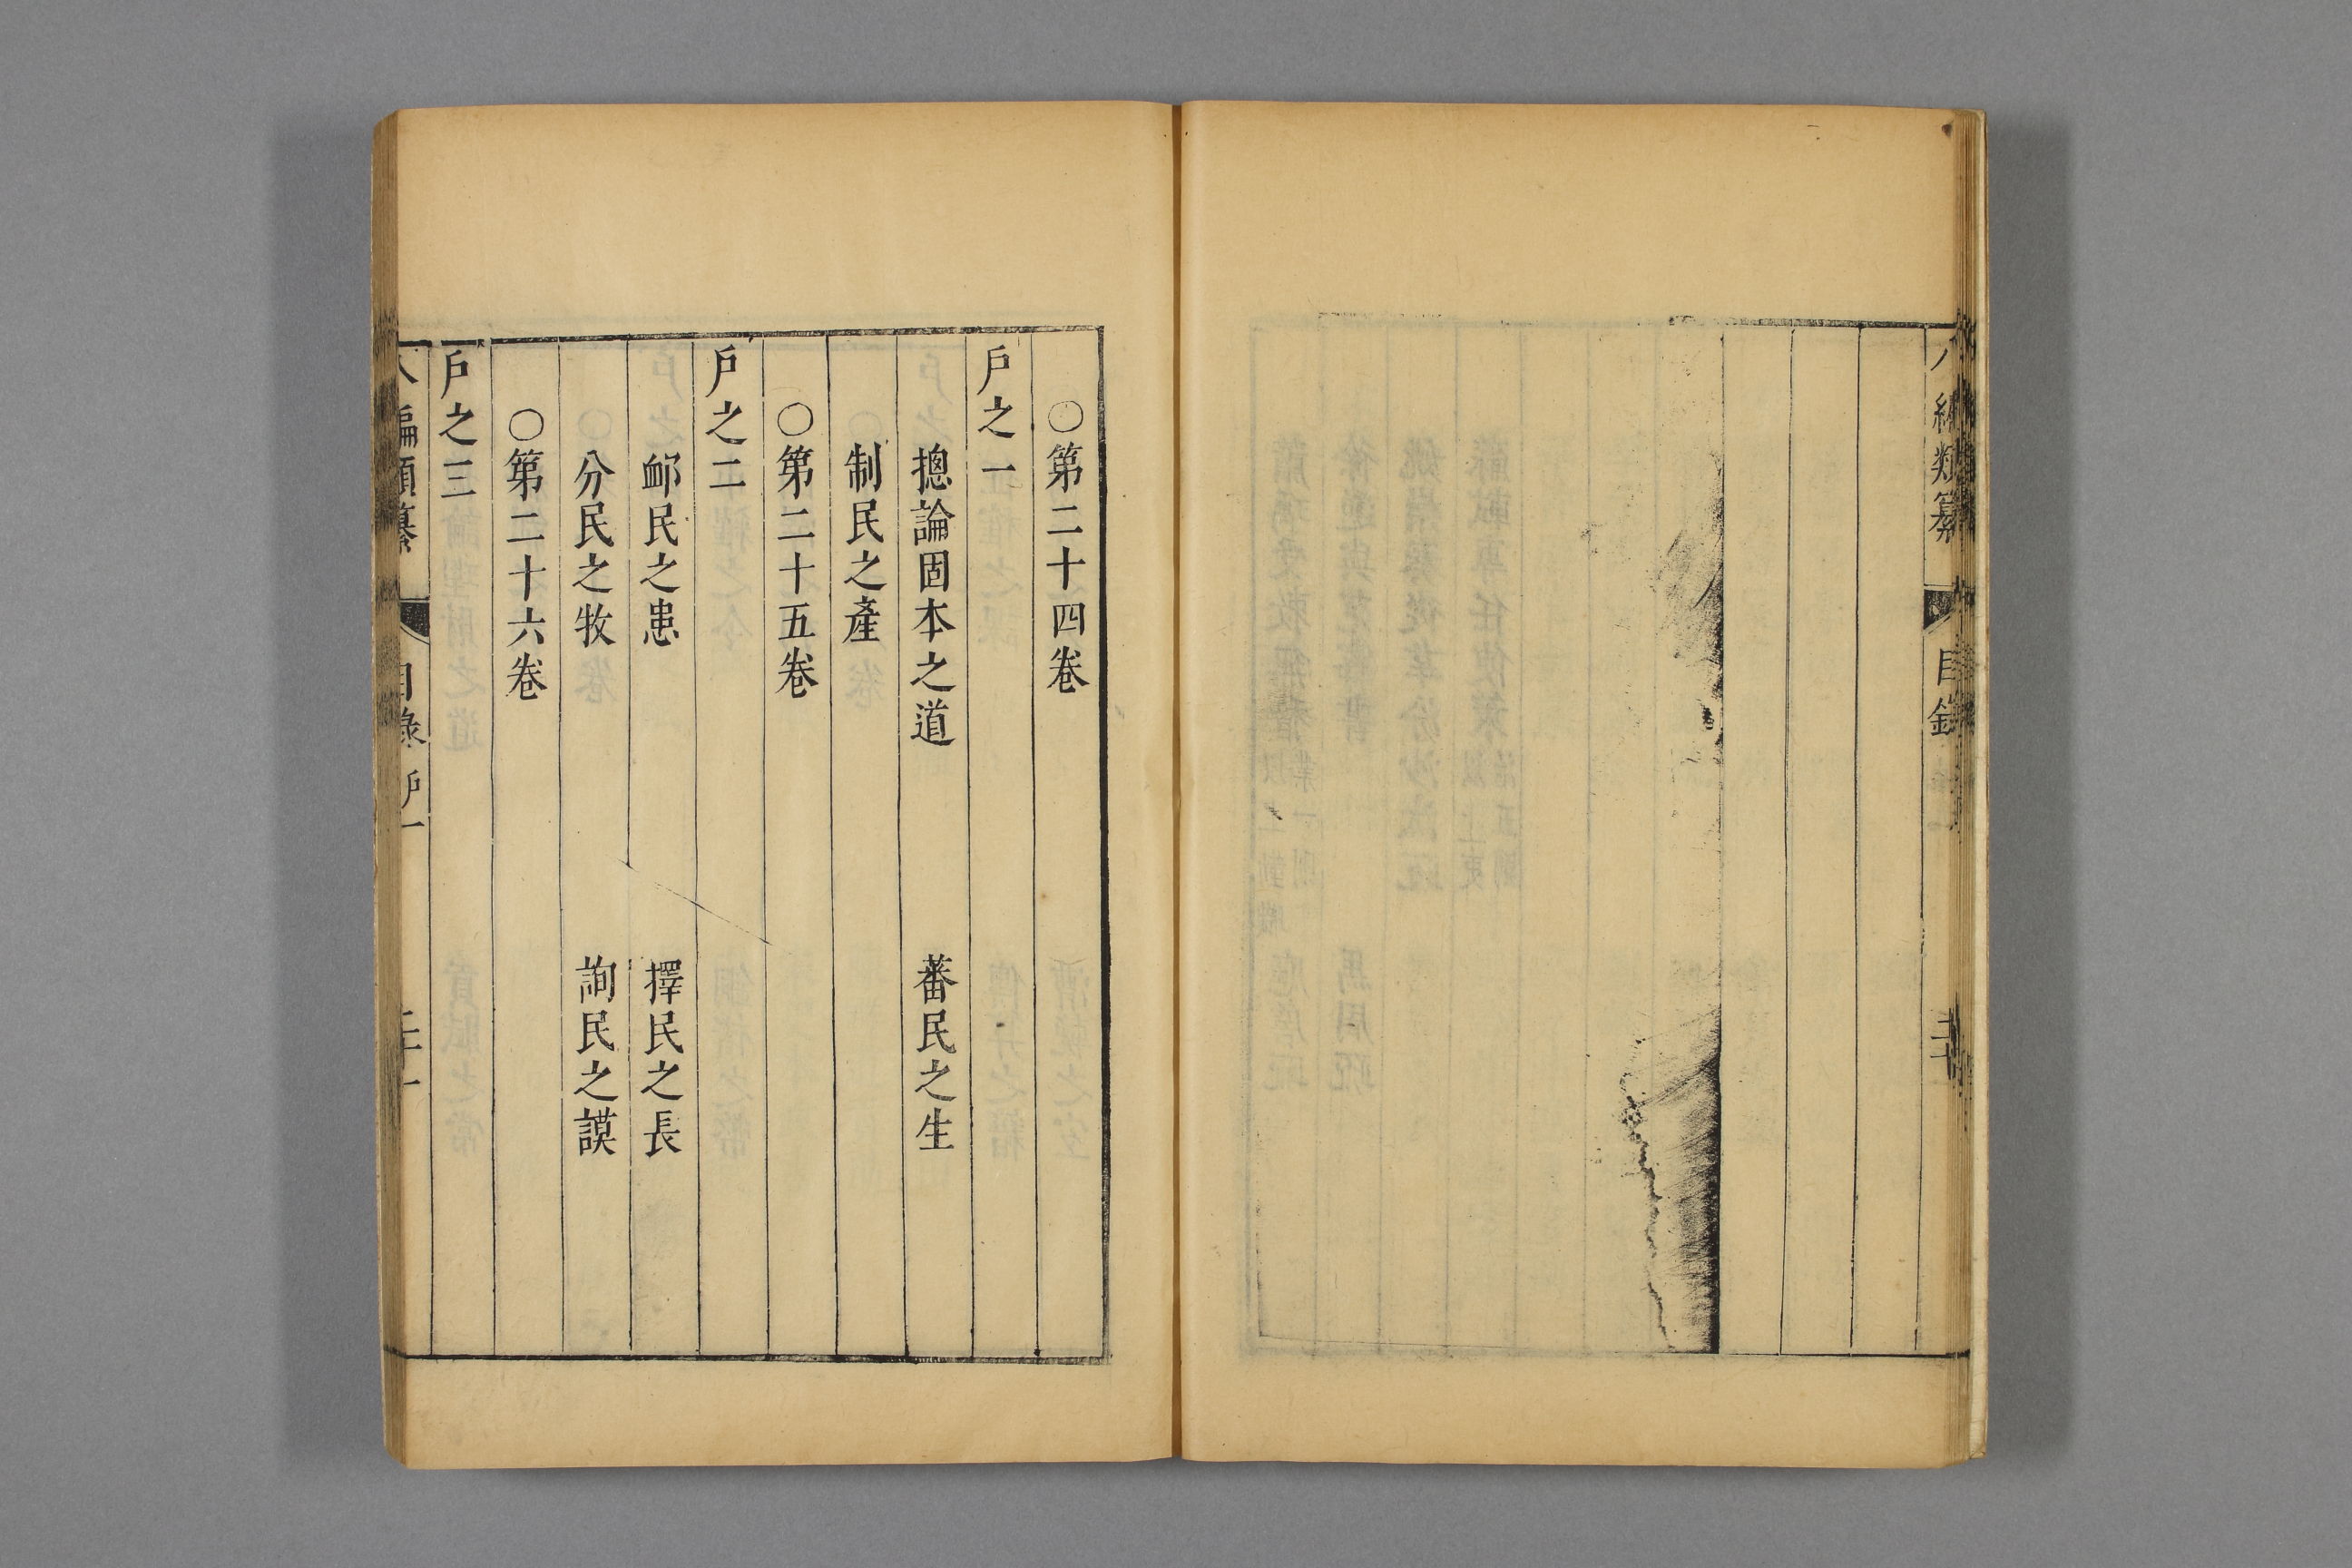 編類纂 目錄
○第二十四卷
戶之一
摠論固本之道 蕃民之生
制民之產
○第二十五卷
戶之二
䘏民之患 擇民之長
分民之牧 詢民之謨
○第二十六卷
戶之三
編類纂 目錄 戶一 二十一